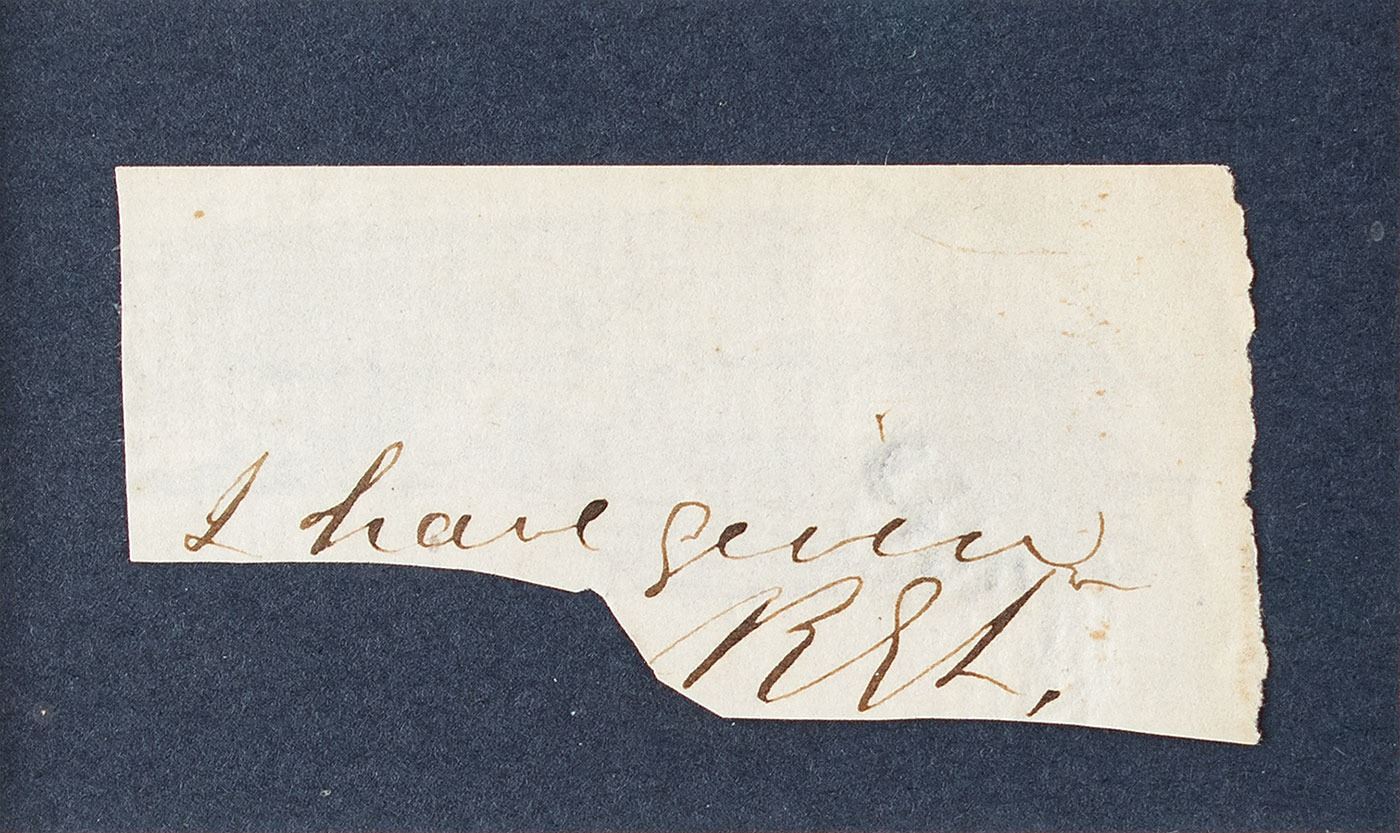 I have given
REL.